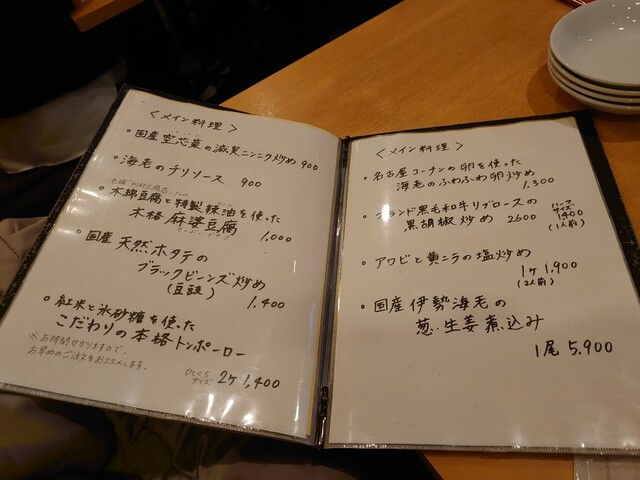 ＜メイン料理＞
・国産空芯菜の減農ニンニク炒め 900
・海老のチリソース 900
・木綿豆腐と特製辣油を使った
本格麻婆豆腐 1,000
・国産天然ホタテの
ブラックビーンズ炒め
(豆豉) 1,400
・紅米と氷砂糖を使った
こだわりの本格トンポーロー
※お時間かかりますので、
お早めのご注文をおススメします。
ひとくちサイズ 2ケ 1,400
＜メイン料理＞
・名古屋コーチンの卵を使った
海老のふわふわ卵炒め 1,300
・ブランド黒毛和牛リブロースの
黒胡椒炒め 2600 ハーフサイズ 1400 (1人前)
・アワビと黄ニラの塩炒め
1ケ 1,900
(2人前)
・国産伊勢海老の
葱・生姜煮込み
1尾 5,900